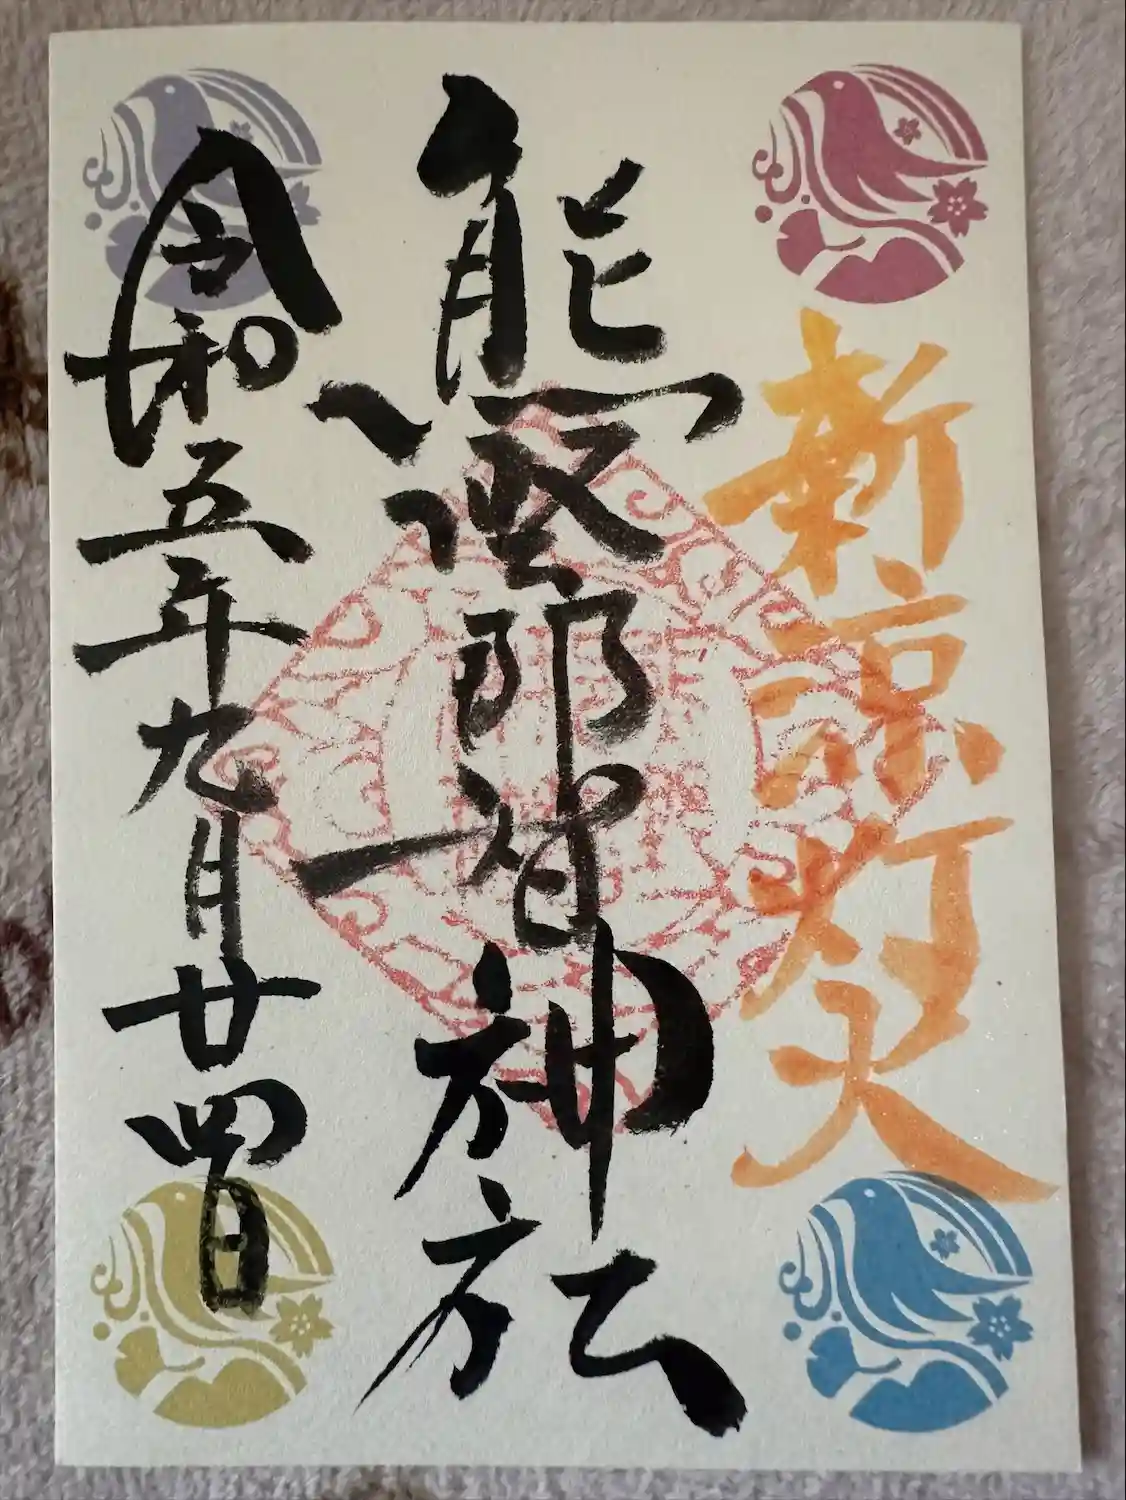 新涼灯火
熊野那智神社
令和五年九月廿四日